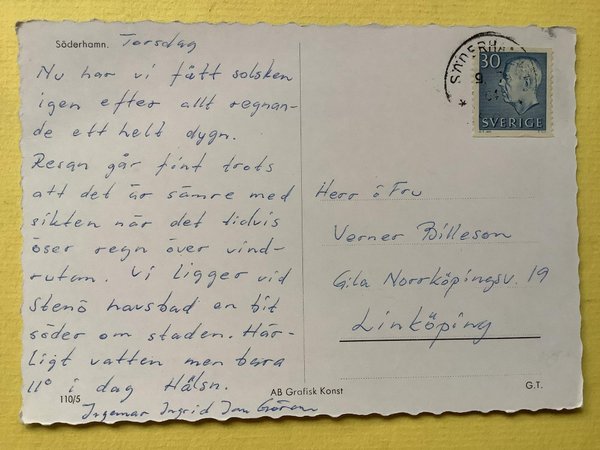 Söderhamn. Torsdag
Nu har vi fått solsken
igen efter allt regnan-
de ett helt dygn.
Resan går fint trots
att det är sämre med
sikten när det tidvis
öser regn över vind-
rutan. Vi ligger vid
Stenö havsbad en bit
söder om staden. Här-
ligt vatten men bara
11° i dag Hälsn.
Ingemar Ingrid Jan Göran
110/5
AB Grafisk Konst
G.T.
SÖDERHA
30
SVERIGE
Herr o Fru
Verner Billeson
G:la Norrköpingsv. 19
Linköping